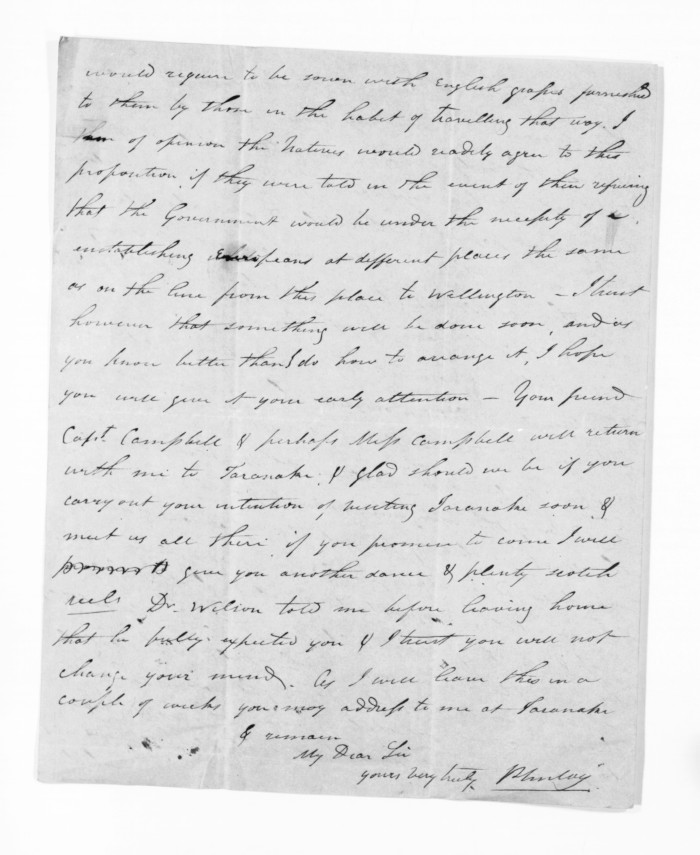 would require to be sown with English grasses furnished
to them by those in the habit of travelling that way. I
am of opinion the Natives would readily agree to this
proposition if they were told in the event of their refusing
that the Government would be under the necessity of
establishing Europeans at different places the same
as on the line from this place to Wellington – I trust
however that something will be done soon, and as
you know better than I do how to arrange it, I hope
you will give it your early attention – Your friend
Capt. Campbell & perhaps Miss Campbell will return
with me to Taranaki & glad should we be if you
carry out your intention of visiting Taranaki soon &
meet us all there if you promise to come I will
give you another dance & plenty scotch
reels Dr. Wilson told me before leaving home
that he fully expected you & I trust you will not
change your mind. As I will leave this in a
couple of weeks you may address to me at Taranaki
& remain
My Dear Sir
yours very truly